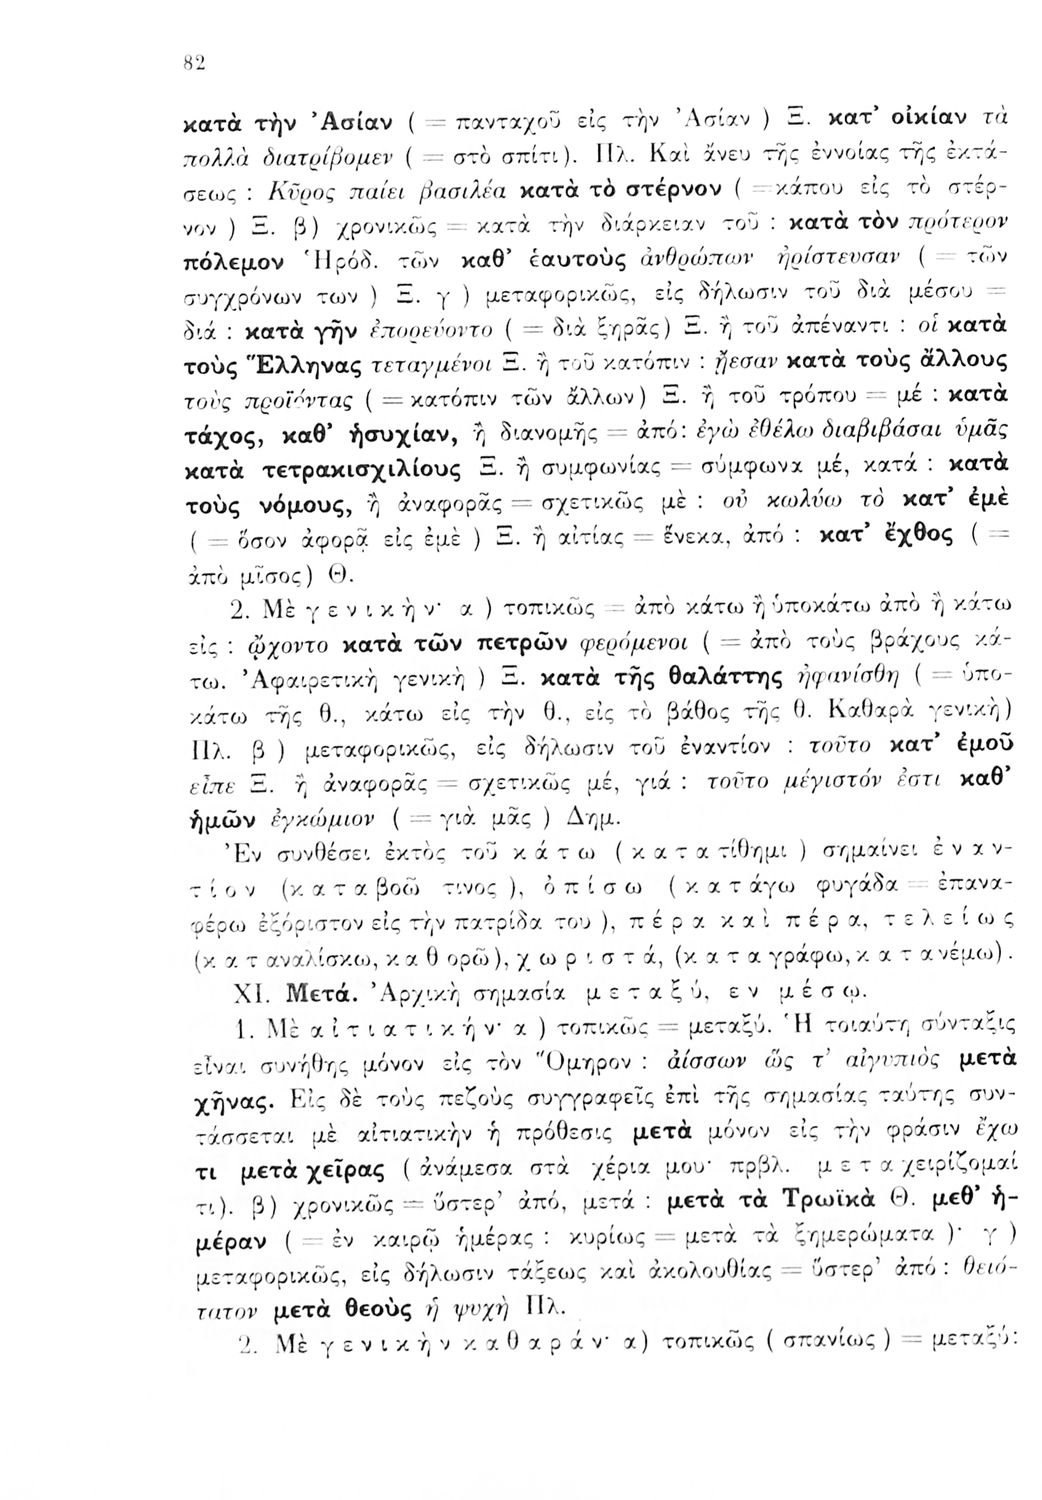 82
κατὰ τὴν Ἀσίαν ( = πανταχοῦ εἰς τὴν Ἀσίαν ) Ξ. κατ’ οἰκίαν τὰ
πολλὰ διατρίβομεν ( = στὸ σπίτι). Πλ. Καὶ ἄνευ τῆς ἐννοίας τῆς ἐκτά-
σεως : Κῦρος παίει βασιλέα κατὰ τὸ στέρνον ( = κάπου εἰς τὸ στέρ-
νον ) Ξ. β) χρονικῶς = κατὰ τὴν διάρκειαν τοῦ : κατὰ τὸν πρότερον
πόλεμον Ἡρόδ. τῶν καθ’ ἑαυτοὺς ἀνθρώπων ἠρίστευσαν ( = τῶν
συγχρόνων των ) Ξ. γ ) μεταφορικῶς, εἰς δήλωσιν τοῦ διὰ μέσου =
διά : κατὰ γῆν ἐπορεύοντο ( = διὰ ξηρᾶς) Ξ. ἢ τοῦ ἀπέναντι : οἱ κατὰ
τοὺς Ἕλληνας τεταγμένοι Ξ. ἢ τοῦ κατόπιν : ᾔεσαν κατὰ τοὺς ἄλλους
τοὺς προϊόντας ( = κατόπιν τῶν ἄλλων) Ξ. ἢ τοῦ τρόπου = μέ : κατὰ
τάχος, καθ’ ἡσυχίαν, ἢ διανομῆς = ἀπό: ἐγὼ ἐθέλω διαβιβάσαι ὑμᾶς
κατὰ τετρακισχιλίους Ξ. ἢ συμφωνίας = σύμφωνα μέ, κατά : κατὰ
τοὺς νόμους, ἢ ἀναφορᾶς = σχετικῶς μὲ : οὐ κωλύω τὸ κατ’ ἐμὲ
( = ὅσον ἀφορᾷ εἰς ἐμὲ ) Ξ. ἢ αἰτίας = ἕνεκα, ἀπό : κατ’ ἔχθος ( =
ἀπὸ μῖσος) Θ.
2. Μὲ γ ε ν ι κ ὴ ν· α ) τοπικῶς = ἀπὸ κάτω ἢ ὑποκάτω ἀπὸ ἢ κάτω
εἰς : ᾤχοντο κατὰ τῶν πετρῶν φερόμενοι ( = ἀπὸ τοὺς βράχους κά-
τω. Ἀφαιρετικὴ γενικὴ ) Ξ. κατὰ τῆς θαλάττης ἠφανίσθη ( = ὑπο-
κάτω τῆς θ., κάτω εἰς τὴν θ., εἰς τὸ βάθος τῆς θ. Καθαρὰ γενικὴ)
Πλ. β ) μεταφορικῶς, εἰς δήλωσιν τοῦ ἐναντίον : τοῦτο κατ’ ἐμοῦ
εἶπε Ξ. ἢ ἀναφορᾶς = σχετικῶς μέ, γιά : τοῦτο μέγιστόν ἐστι καθ’
ἡμῶν ἐγκώμιον ( = γιὰ μᾶς ) Δημ.
Ἐν συνθέσει ἐκτὸς τοῦ κ ά τ ω ( κ α τ α τίθημι ) σημαίνει ἐ ν α ν-
τ ί ο ν (κ α τ α βοῶ τινος ), ὀ π ί σ ω ( κ α τ άγω φυγάδα = ἐπανα-
φέρω ἐξόριστον εἰς τὴν πατρίδα του ), π έ ρ α κ α ὶ π έ ρ α, τ ε λ ε ί ω ς
(κ α τ αναλίσκω, κ α θ ορῶ), χ ω ρ ι σ τ ά, (κ α τ α γράφω, κ α τ ανέμω).
XI. Μετά. Ἀρχικὴ σημασία μ ε τ α ξ ύ, ε ν μ έ σ ῳ.
1. Μὲ α ἰ τ ι α τ ι κ ή ν· α ) τοπικῶς = μεταξύ. Ἡ τοιαύτη σύνταξις
εἶναι συνήθης μόνον εἰς τὸν Ὅμηρον : ἀίσσων ὥς τ’ αἰγυπιὸς μετὰ
χῆνας. Εἰς δὲ τοὺς πεζοὺς συγγραφεῖς ἐπὶ τῆς σημασίας ταύτης συν-
τάσσεται μὲ αἰτιατικὴν ἡ πρόθεσις μετὰ μόνον εἰς τὴν φράσιν ἔχω
τι μετὰ χεῖρας ( ἀνάμεσα στὰ χέρια μου· πρβλ. μ ε τ α χειρίζομαί
τι). β) χρονικῶς = ὕστερ’ ἀπό, μετά : μετὰ τὰ Τρωϊκὰ Θ. μεθ’ ἡ-
μέραν ( = ἐν καιρῷ ἡμέρας : κυρίως = μετὰ τὰ ξημερώματα )· γ )
μεταφορικῶς, εἰς δήλωσιν τάξεως καὶ ἀκολουθίας = ὕστερ’ ἀπό : θειό-
τατον μετὰ θεοὺς ἡ ψυχὴ Πλ.
2. Μὲ γ ε ν ι κ ὴ ν κ α θ α ρ ά ν· α) τοπικῶς ( σπανίως ) = μεταξύ: